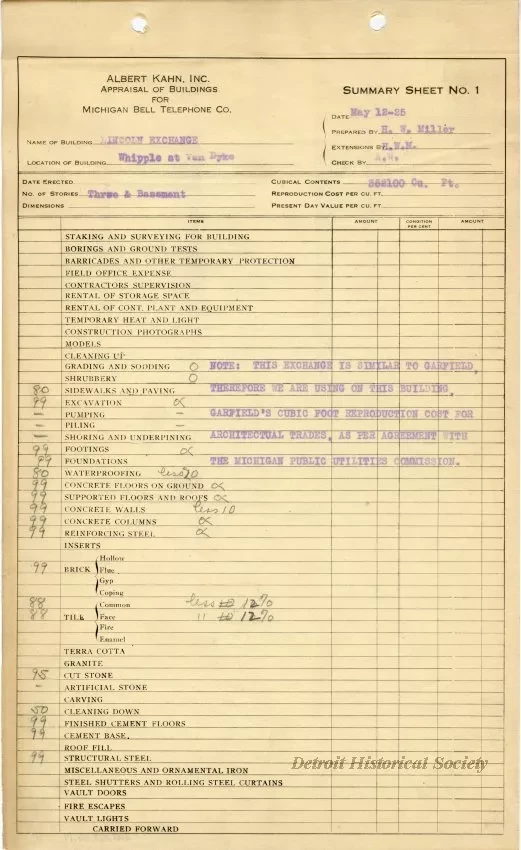 ALBERT KAHN, INC.
APPRAISAL OF BUILDINGS
FOR
MICHIGAN BELL TELEPHONE CO.
SUMMARY SHEET NO. 1
DATE May 12-25
PREPARED BY H. W. Miller
EXTENSIONS BY H.W.M.
CHECK BY A.H.
NAME OF BUILDING LINCOLN EXCHANGE
LOCATION OF BUILDING Whipple at Van Dyke
DATE ERECTED
CUBICAL CONTENTS 552100 Cu. Ft.
NO. OF STORIES Three & Basement
REPRODUCTION COST PER CU. FT.
DIMENSIONS
PRESENT DAY VALUE PER CU. FT.
ITEMS AMOUNT CONDITION PER CENT AMOUNT
STAKING AND SURVEYING FOR BUILDING
BORINGS AND GROUND TESTS
BARRICADES AND OTHER TEMPORARY PROTECTION
FIELD OFFICE EXPENSE
CONTRACTORS SUPERVISION
RENTAL OF STORAGE SPACE
RENTAL OF CONT. PLANT AND EQUIPMENT
TEMPORARY HEAT AND LIGHT
CONSTRUCTION PHOTOGRAPHS
MODELS
CLEANING UP
GRADING AND SODDING O NOTE: THIS EXCHANGE IS SIMILAR TO GARFIELD,
SHRUBBERY O
80 SIDEWALKS AND PAVING THEREFORE WE ARE USING ON THIS BUILDING,
99 EXCAVATION OK
— PUMPING — GARFIELD'S CUBIC FOOT REPRODUCTION COST FOR
— PILING —
— SHORING AND UNDERPINING ARCHITECTUAL TRADES, AS PER AGREEMENT WITH
99 FOOTINGS OK
99 FOUNDATIONS THE MICHIGAN PUBLIC UTILITIES COMMISSION.
80 WATERPROOFING less 20
99 CONCRETE FLOORS ON GROUND OK
99 SUPPORTED FLOORS AND ROOFS OK
99 CONCRETE WALLS less 10
99 CONCRETE COLUMNS OK
99 REINFORCING STEEL OK
INSERTS
Hollow
99 BRICK Flue
Gyp
Coping
88 Common less 10 12%
88 TILE Face " 10 12%
Fire
Enamel
TERRA COTTA
GRANITE
95 CUT STONE
— ARTIFICIAL STONE
CARVING
50 CLEANING DOWN
99 FINISHED CEMENT FLOORS
99 CEMENT BASE.
ROOF FILL
99 STRUCTURAL STEEL
MISCELLANEOUS AND ORNAMENTAL IRON
STEEL SHUTTERS AND ROLLING STEEL CURTAINS
VAULT DOORS
FIRE ESCAPES
VAULT LIGHTS
CARRIED FORWARD
Detroit Historical Society